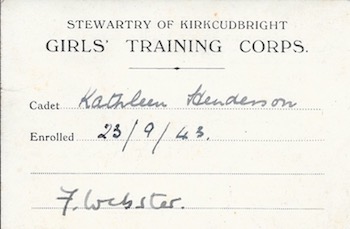 STEWARTRY OF KIRKCUDBRIGHT
GIRLS' TRAINING CORPS.
Cadet Kathleen Henderson
Enrolled 23/9/43.
F. Webster.